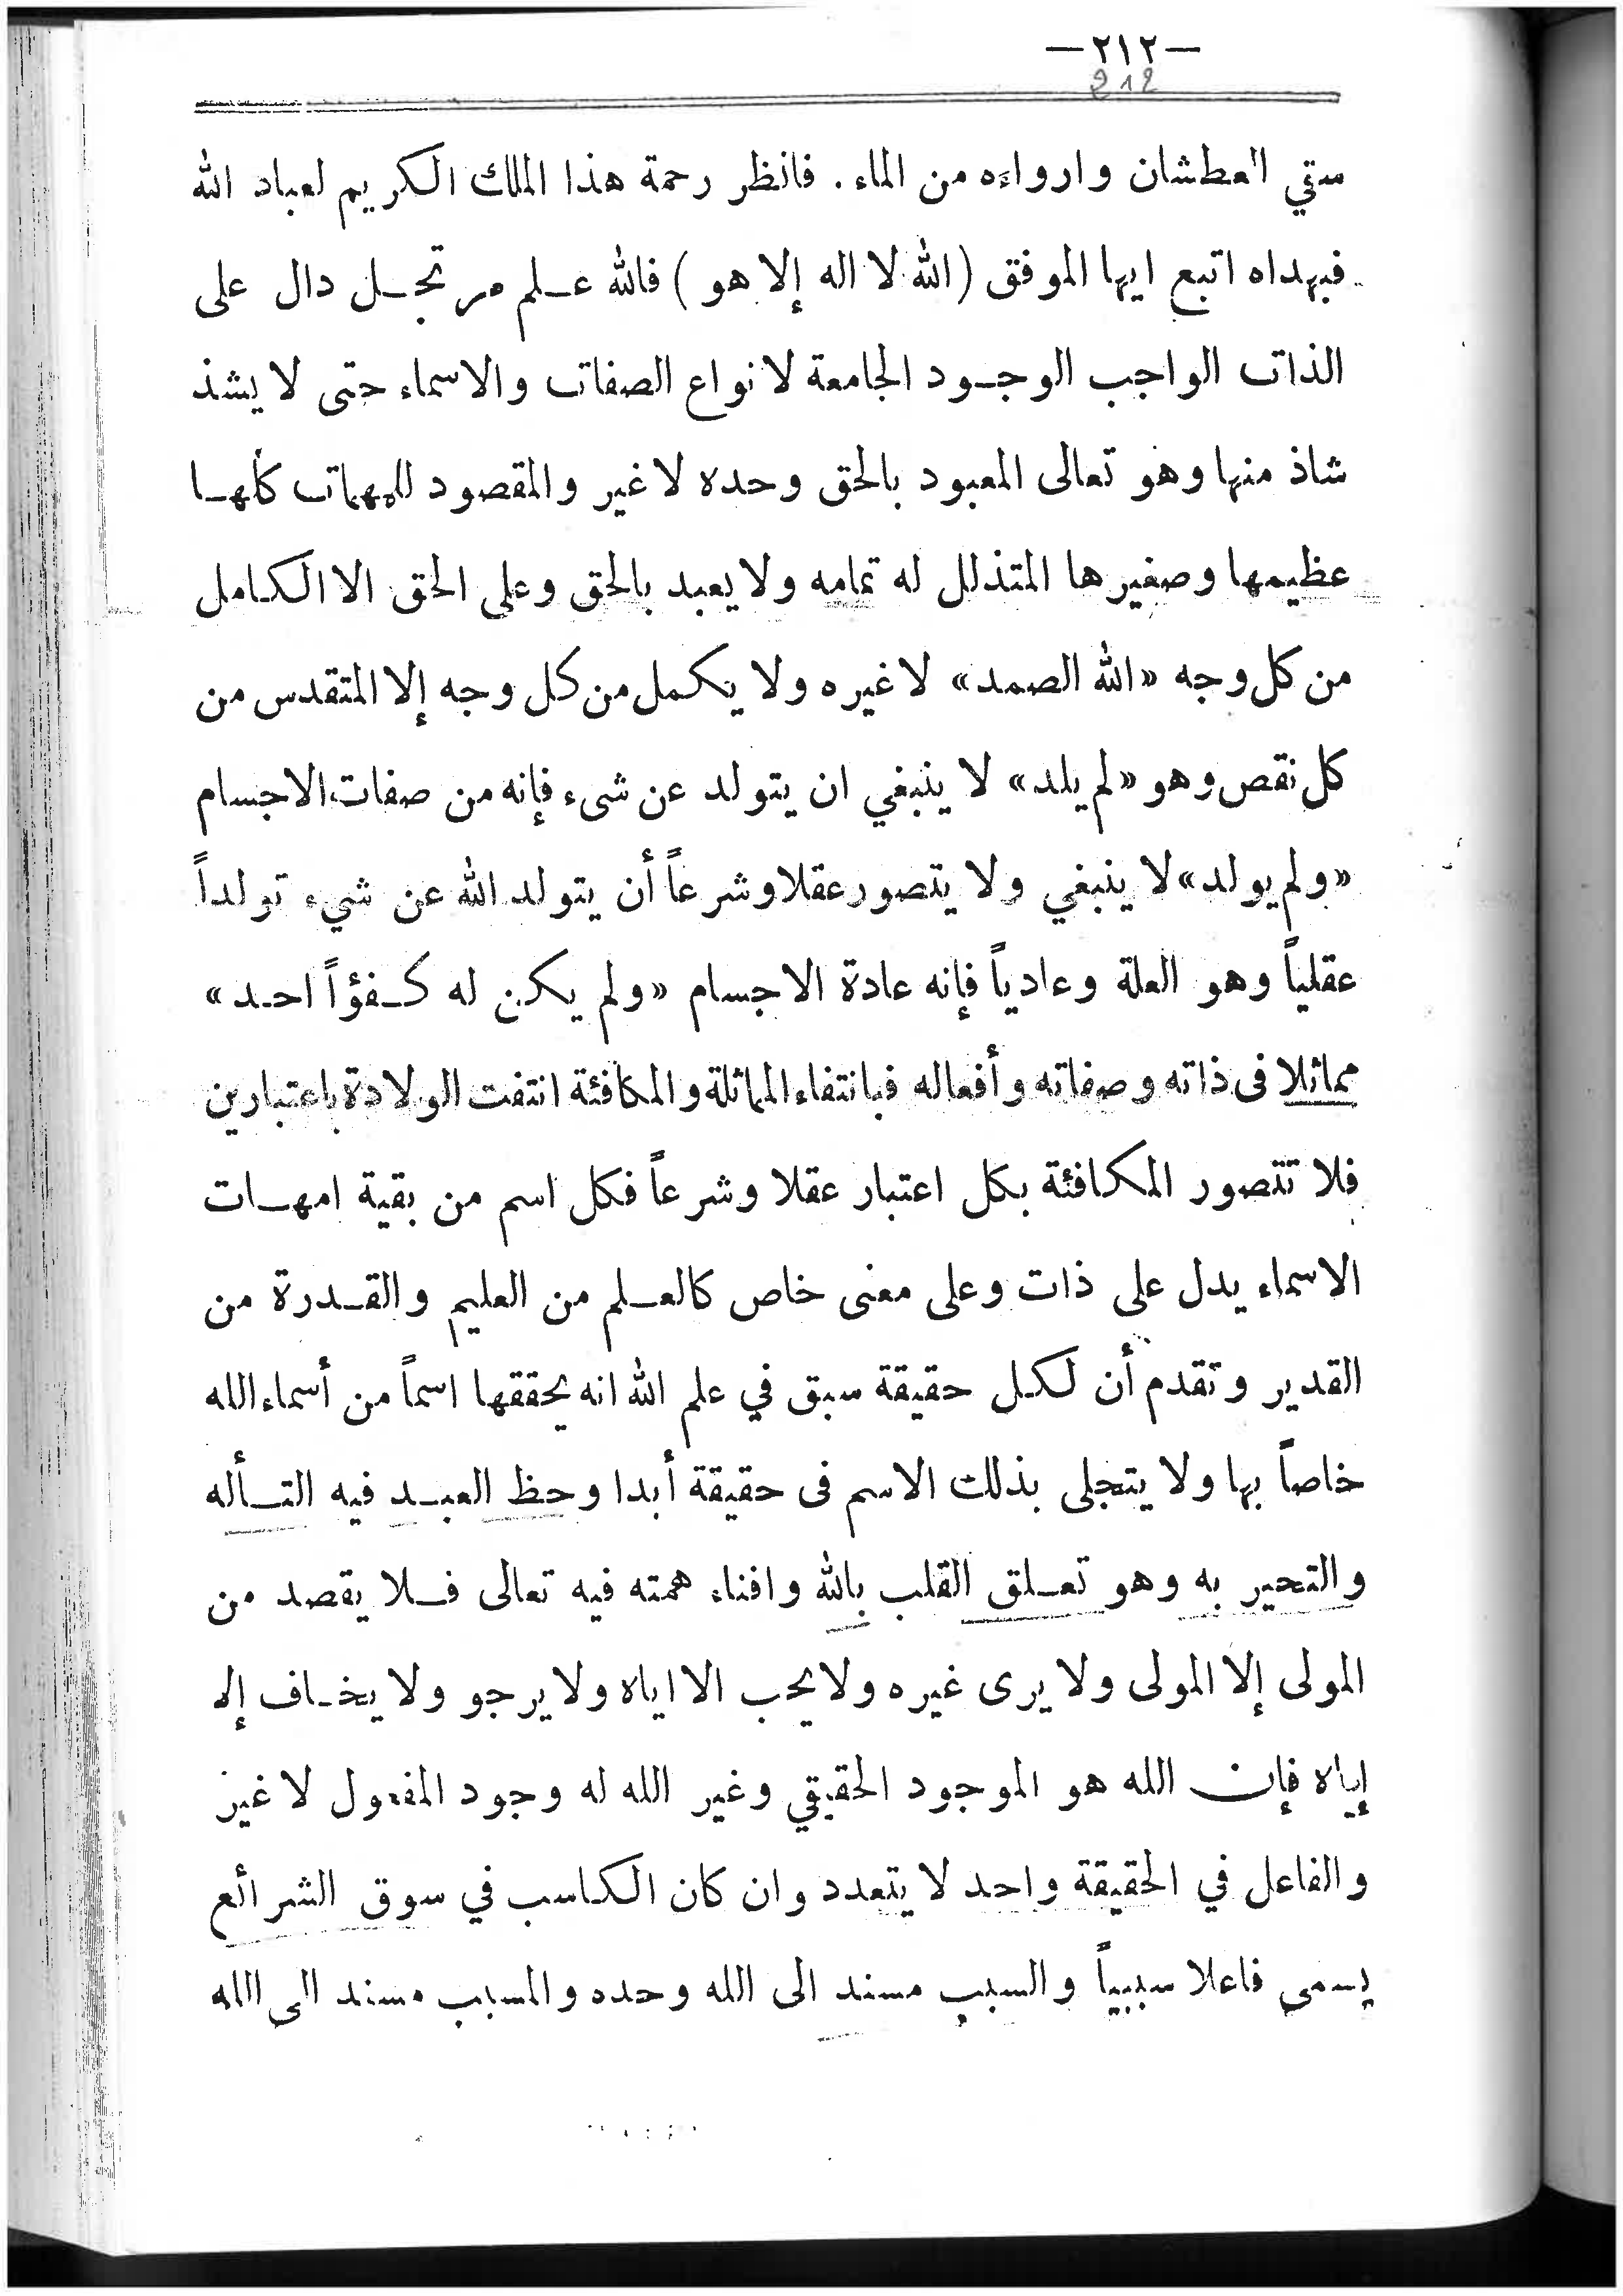 —٢١٢—
212
سقي العطشان وارواءه من الماء . فانظر رحمة هذا الملك الكريم لعباد الله
فبهداه اتبع ايها الموفق (الله لا اله إلا هو) فالله علم مرتجل دال على
الذات الواجب الوجود الجامعة لانواع الصفات والاسماء حتى لا يشذ
شاذ منها وهو تعالى المعبود بالحق وحده لا غير والمقصود للمهمات كلها
عظيمها وصغيرها المتذلل له تمامه ولا يعبد بالحق وعلى الحق الا الكامل
من كل وجه «الله الصمد» لا غيره ولا يكمل من كل وجه إلا المتقدس من
كل نقص وهو «لم يلد» لا ينبغي ان يتولد عن شىء فإنه من صفات الاجسام
«ولم يولد» لا ينبغي ولا يتصور عقلا وشرعاً أن يتولد الله عن شيء تولداً
عقلياً وهو العلة وعادياً فإنه عادة الاجسام «ولم يكن له كفؤاً احد»
مماثلا فى ذاته وصفاته وأفعاله فبانتفاء المماثلة والمكافئة انتفت الولادة باعتبارين
فلا تتصور المكافئة بكل اعتبار عقلا وشرعاً فكل اسم من بقية امهات
الاسماء يدل على ذات وعلى معنى خاص كالعلم من العليم والقدرة من
القدير وتقدم أن لكل حقيقة سبق في علم الله انه يحققها اسماً من أسماء الله
خاصاً بها ولا يتجلى بذلك الاسم فى حقيقة أبدا وحظ العبد فيه التأله
والتحير به وهو تعلق القلب بالله وافناء همته فيه تعالى فلا يقصد من
المولى إلا المولى ولا يرى غيره ولا يحب الا اياه ولا يرجو ولا يخاف إلا
إياه فإن الله هو الموجود الحقيقي وغير الله له وجود المفعول لا غير
والفاعل في الحقيقة واحد لا يتعدد وان كان الكاسب في سوق الشرائع
يسمى فاعلا سببياً والسبب مسند الى الله وحده والمسبب مسند الى الله